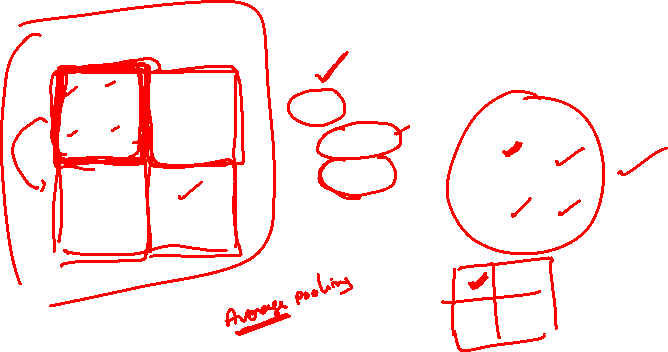 Average pooling